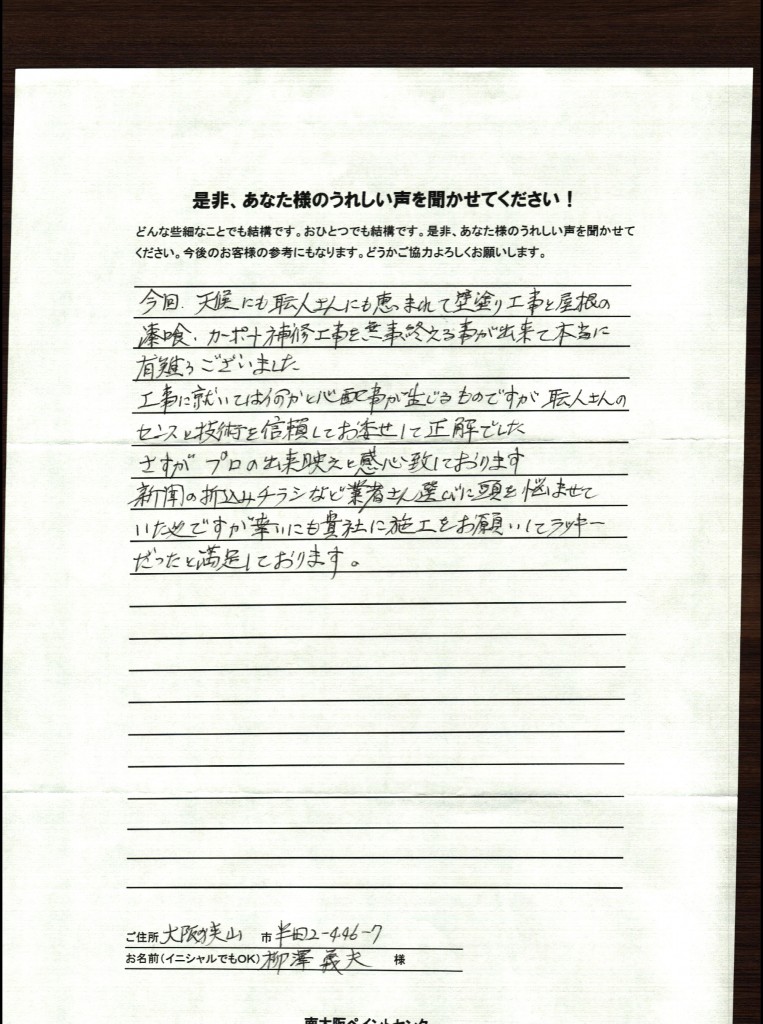 是非、あなた様のうれしい声を聞かせてください！
どんな些細なことでも結構です。おひとつでも結構です。是非、あなた様のうれしい声を聞かせて
ください。今後のお客様の参考にもなります。どうかご協力よろしくお願いします。
今回、天候にも職人さんにも恵まれて壁塗り工事と屋根の
漆喰、カーポート補修工事を無事終える事が出来て本当に
有難うございました
工事に就いては何かと心配事が生じるものですが職人さんの
センスと技術を信頼してお委せして正解でした
さすがプロの出来映えと感心致しております
新聞の折込みチラシなど業者さん選びに頭を悩ませて
いた処ですが幸いにも貴社に施工をお願いしてラッキー
だったと満足しております。
ご住所 大阪狭山 市 半田2-446-7
お名前(イニシャルでもOK) 柳澤 義夫 様
南大阪ペイントセンター